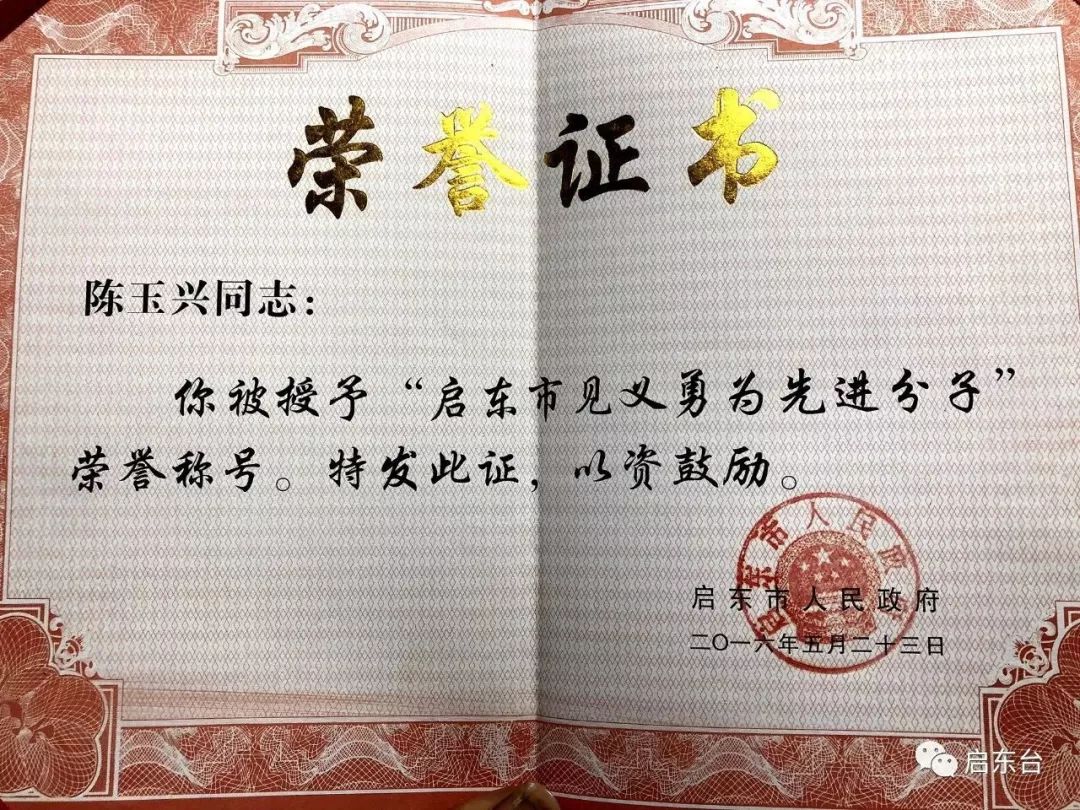 荣誉证书
陈玉兴同志：
你被授予“启东市见义勇为先进分子”
荣誉称号。特发此证，以资鼓励。
启东市人民政府
启东市人民政府
二〇一六年五月二十三日
启东台